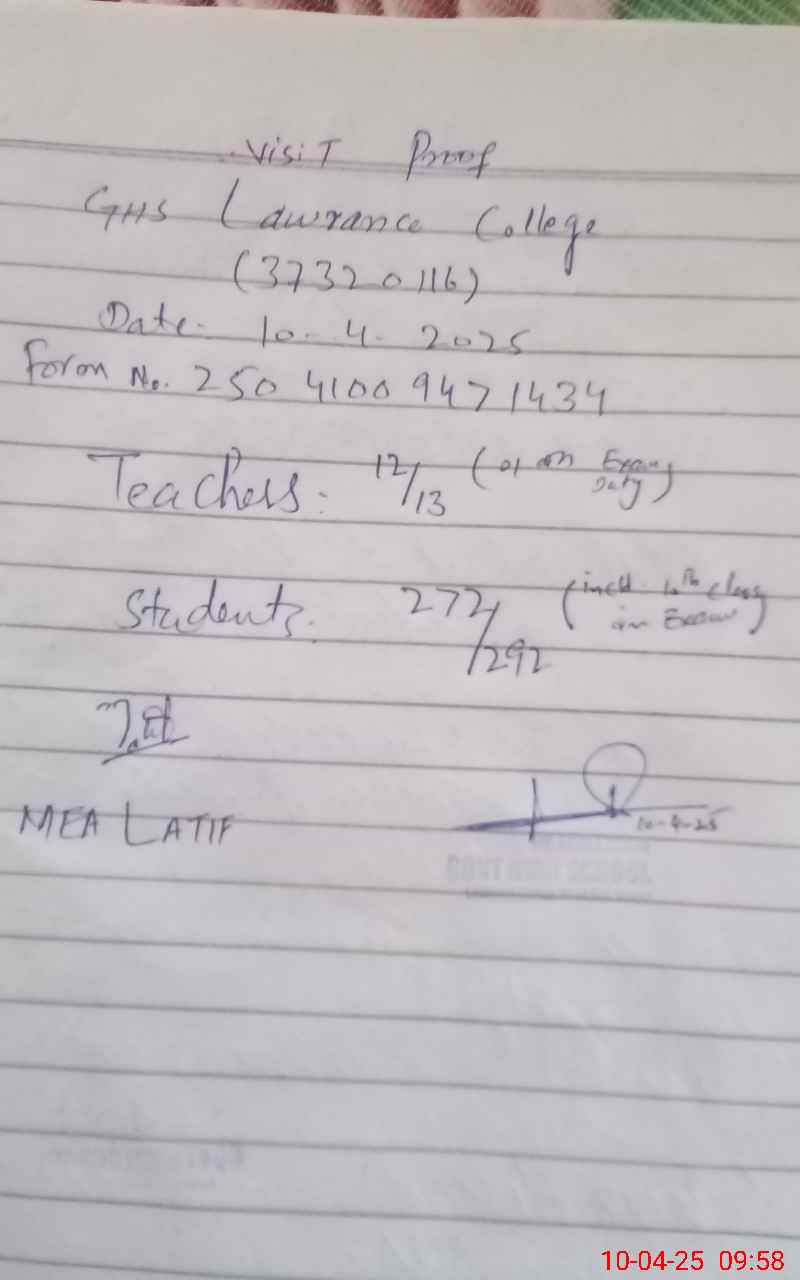 Visit Proof
GHS Lawrance College
(37320116)
Date. 10-4-2025
Form No. 250 4100 9471434
Teachers: 12/13 (01 on Exam Duty)
Students. 272/292 (incld. 10th class in Exam)
MEA LATIF
10-4-25
10-04-25 09:58